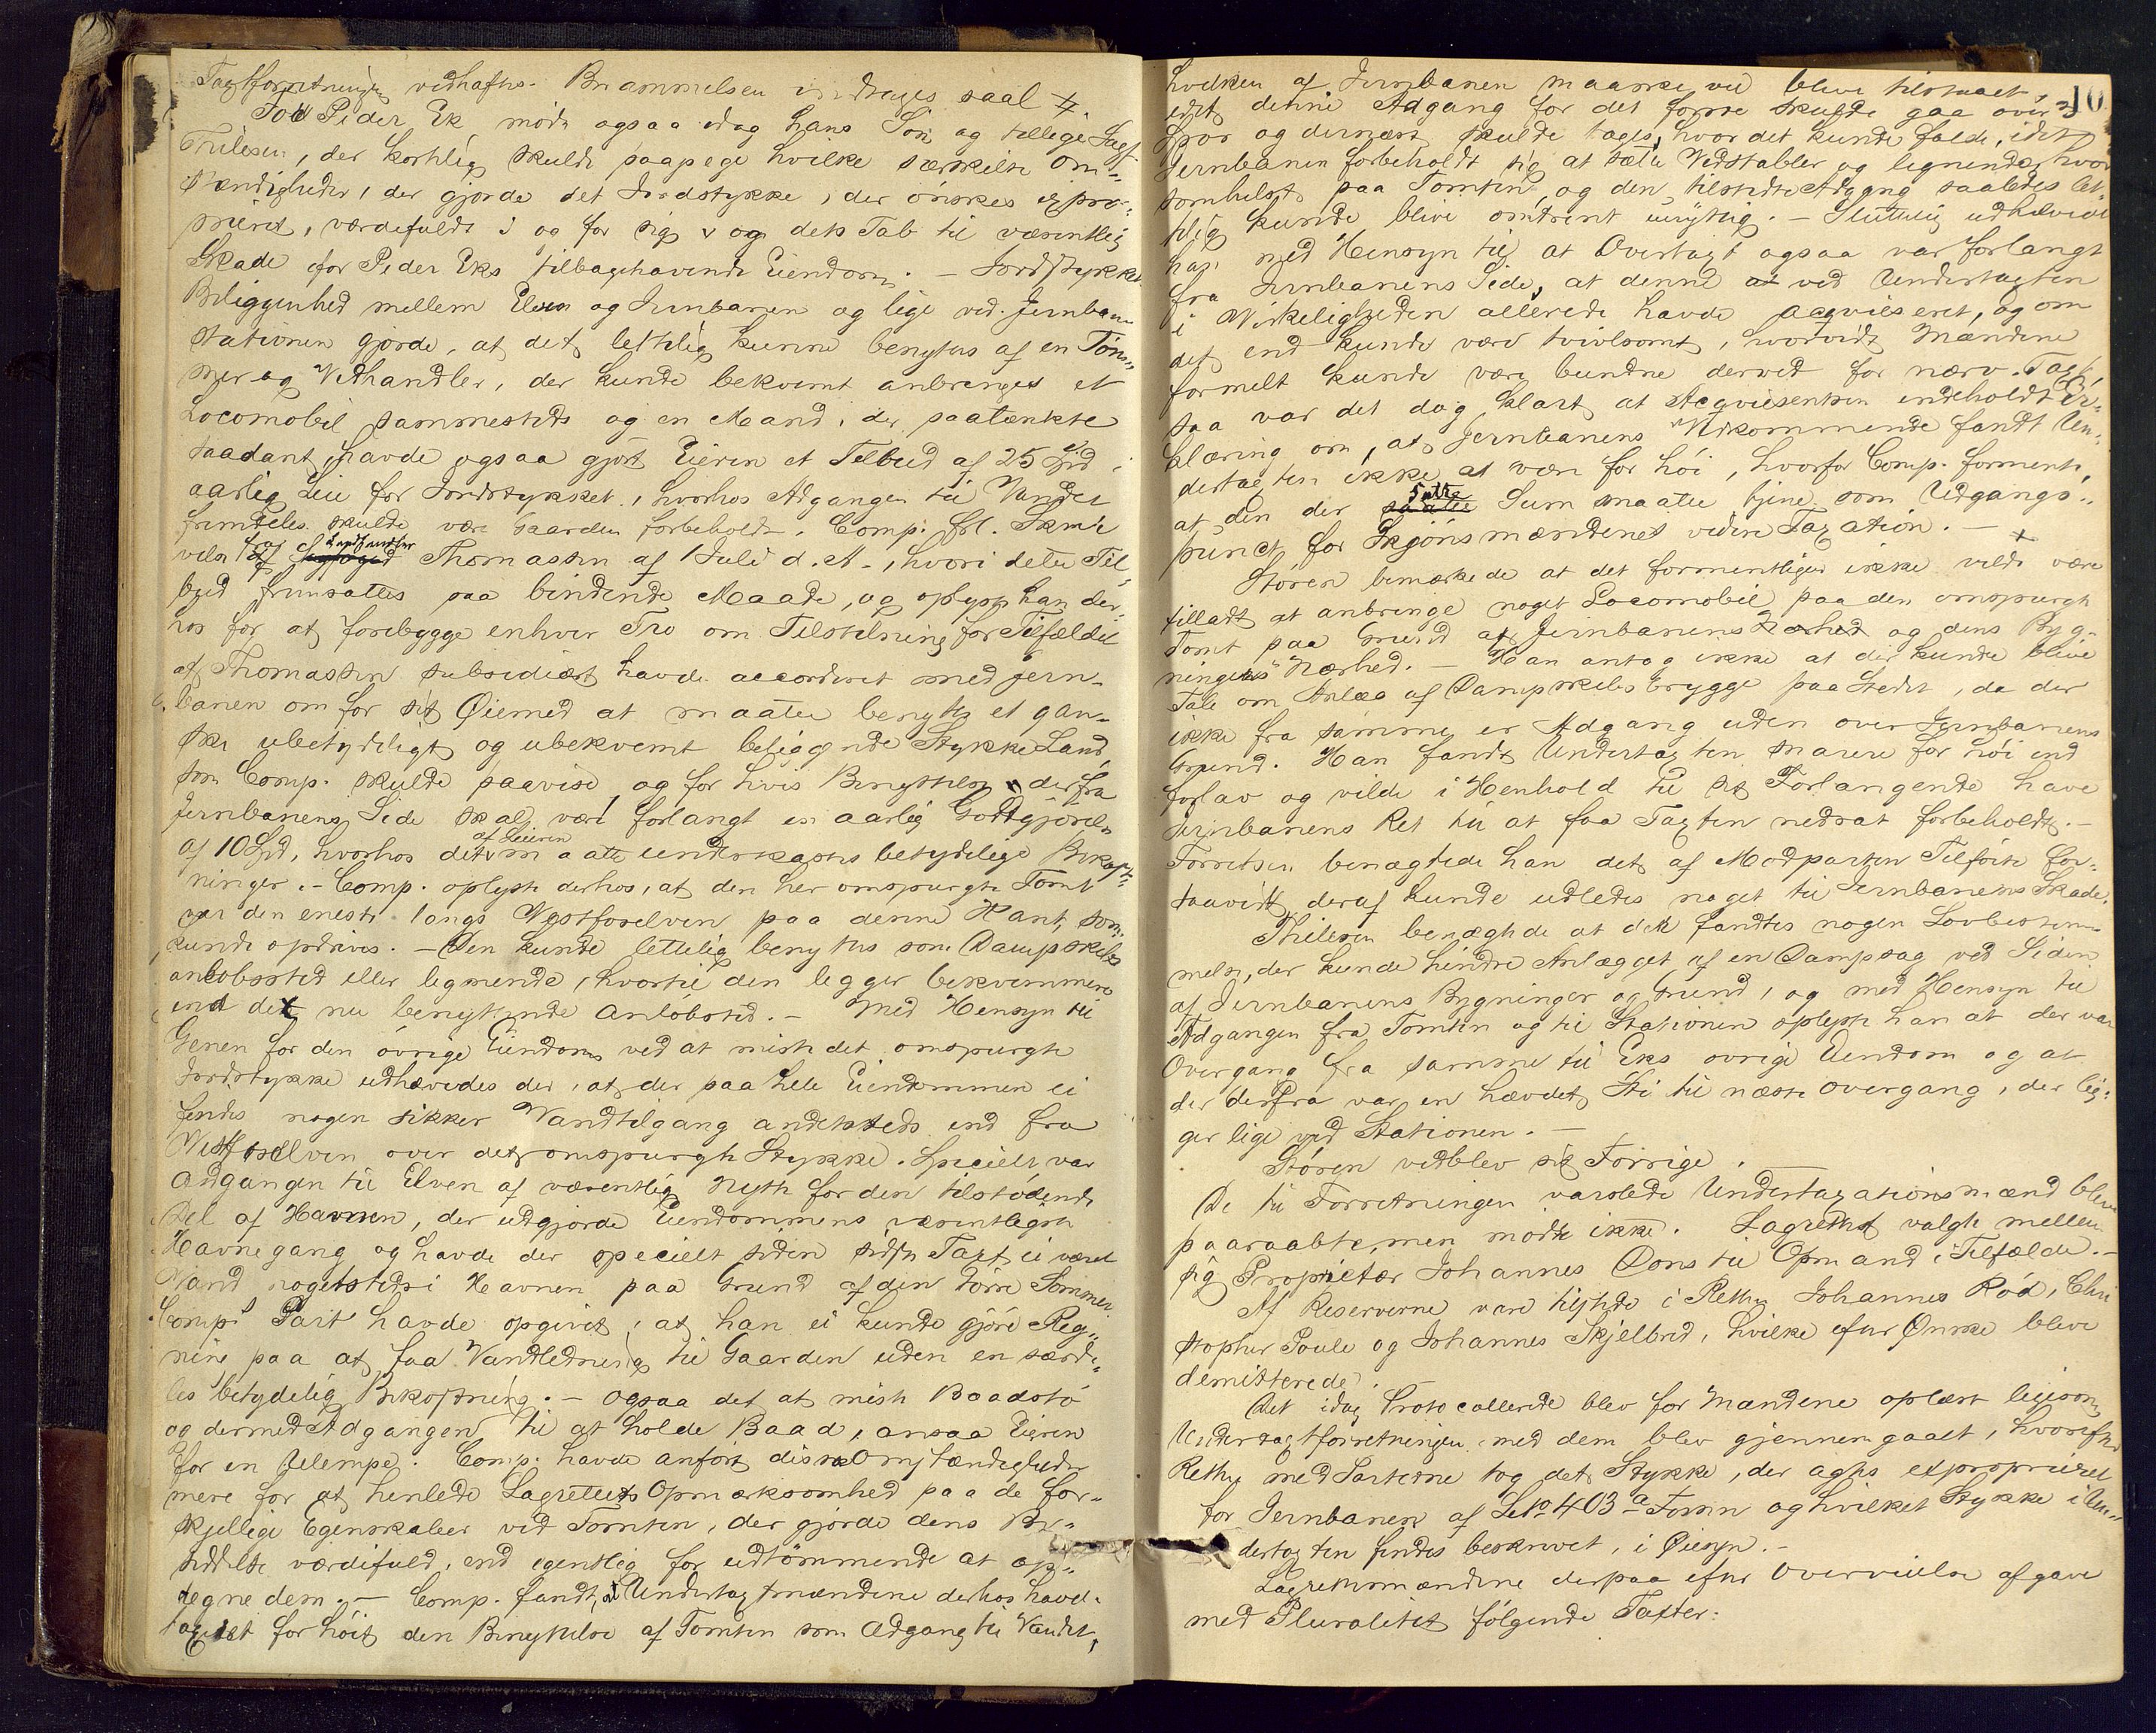 Taxtforretningen vedhæftes. Bnammelsen inddrages saal #
For Peder Ek mödte ogsaa idag hans Sön og tillige Sagf.
Thilesen, der kortelig skulde paapege hvilke særskilte Om-
stændigheder, der gjorde det Jordstykke, der önskes expro-
prieret, værdifuldt i og for sig og dets Tab til væsentlig
Skade for Peder Eks tilbageværende Eiendom. - Jordstykkets
Beliggenhed mellem Elven og Jernbanen og lige ved Jernbane
stationen gjorde, at det lettelig kunne benyttes af en Töm-
mer og Vedhandler, der kunde bekvemt anbringes et
Locomobil sammesteds og en Mand, der paatænkte
saadant, havde ogsaa gjort Eieren et Tilbud af 25 Spd i
aarlig Leie for Jordstykket, hvorhos Adgangen til Vandet
fremdeles skulde være Gaarden forbeholdt. Comp. frl. Skri-
velse fra Landhandler Thomassen af 1 Juli d. A., hvori dette Til-
bud fremsattes paa bindende Maade, og oplyste han der-
hos for at forebygge enhver Tro om Tilstelning for Tilfældet
at Thomassen subsidiært havde accorderet med Jern-
banen om for sit Øiemed at maatte benytte et gan-
ske ubetydeligt og ubekvemt beliggende Stykke Land,
som Comp. skulde paavise og for hvis Benyttelse der fra
Jernbanens Side skal være forlangt en aarlig Godtgjörelse
af 10 Spd, hvorhos det af Leieren maatte underkastes betydelige Bekost-
ninger. - Comp. oplyste derhos, at den her omspurgte Tomt
var den eneste langs Vestfoselven paa denne Kant, som
kunde opdrives. - Den kunde lettelig benyttes som Dampskibs
anlöbssted eller lignende, hvortil den ligger bekvemmere
end det nu benyttende Anlöbssted. - Med Hensyn til
Genen for den övrige Eiendom ved at miste det omspurgte
Jordstykke udhævedes der, at der paa hele Eiendommen ei
findes nogen sikker Vandtilgang andetsteds end fra
Vestfoselven over det omspurgte Stykke. Specielt var
Adgangen til Elven af væsentlig Nytte for den tilstödende
Del af Havnen, der udgjorde Eiendommens væsentligste
Havnegang og havde der specielt siden sidste Taxt ei været
Vand nogetsteds i Havnen paa Grund af den törre Sommer.
Comps Part havde opgivet, at han ei kunde gjöre Reg-
ning paa at faa Vandledning til Gaarden uden en særde-
les betydelig Bekostning. - Ogsaa det at miste Baadstö
og dermed Adgangen til at holde Baad, ansaa Eieren
for en Ulempe. Comp. havde anfört disse Omstændigheder
mere for at henlede Lagrettets Opmærksomhed paa de for-
skjellige Egenskaber ved Tomten, der gjorde dens Be-
siddelse værdifuld, end egentlig for udtömmende at op-
regne dem. - Comp. fandt, at Undertaxtmændene derhos havde
taxeret for höit den Benyttelse af Tomten som Adgang til Vandet,
hvilken af Jernbanen maaske vil blive tilstaaet,
idet denne Adgang for det förste skulde gaa over 3
Spor og dernæst skulde tages, hvor det kunde falde, idet
Jernbanen forbeholdt sig at sætte Vedstabler og lignende, hvor
somhelst paa Tomten, og den tilstedte Adgang saaledes let-
telig kunde blive omtrent unyttig. - Sluttelig udhævede
han med Hensyn til at Overtaxt ogsaa var forlangt
fra Jernbanens Side, at denne ved Undertaxten
i Virkeligheden allerede havde acqviesceret, og om
det end kunde være tvivlsomt, hvorvidt Mændene
formelt kunde være bundne derved for nærv. Taxt,
saa var det dog klart at Acqviescensen indeholdt Er-
klæring om, at Jernbanens Vedkommende fandt Un-
dertaxten ikke at være for höi, hvorfor Comp. formente,
at den der satte Sum maatte tjene som Udgangs-
punct for Skjönsmændenes videre Taxation. -
Stören bemærkede at det formentligen ikke vilde være
tilladt at anbringe noget Locomobil paa den omspurgte
Tomt paa Grund af Jernbanens Nærhed og dens Byg-
ningers Nærhed. - Han antog ikke at der kunde blive
Tale om Anlæg af Dampskibsbrygge paa Stedet, da der
ikke fra samme er Adgang uden over Jernbanens
Grund. Han fandt Undertaxten snarere for höi end
for lav og vilde i Henhold til sit Forlangende have
Jernbanens Ret til at faa Taxten nedsat forbeholdt. -
Forresten benægtede han det af Modparten Tilförte for-
saavidt deraf kunde udledes noget til Jernbanens Skade.
Thilesen benægtede at der fandtes nogen Lovbestem-
melse, der kunde hindre Anlægget af en Dampsag ved Siden
af Jernbanens Bygninger og Grund, og med Hensyn til
Adgangen fra Tomten og til Stationen oplyste han at der var
Overgang fra samme til Eks övrige Eiendom og at
der derfra var en hævdet Sti til næste Overgang, der lig-
ger lige ved Stationen. -
Stören vedblev sit Forrige. -
De til Forretningen varslede Undertaxationsmænd bleve
paaraabte, men mödte ikke. Lagrettet valgte mellem
sig Proprietær Johannes Dons til Opmand i Tilfælde. -
Af Reserverne vare tilstede i Retten Johannes Röd, Chri
stopher Poule og Johannes Skjelbred, hvilke efter Ønske bleve
demitterede.
Det idag Protocollerede blev for Mændene oplæst ligesom
Undertaxtforretningen med dem blev gjennemgaaet, hvorefter
Retten med Parterne tog det Stykke, der agtes exproprieret
for Jernbanen af Lno 403a Fossen og hvilket Stykke i Un-
dertaxten findes beskrevet, i Øiesyn. -
Lagrettesmændene derpaa efter Overveielse afgave
med Pluralitet fölgende Taxter:
10